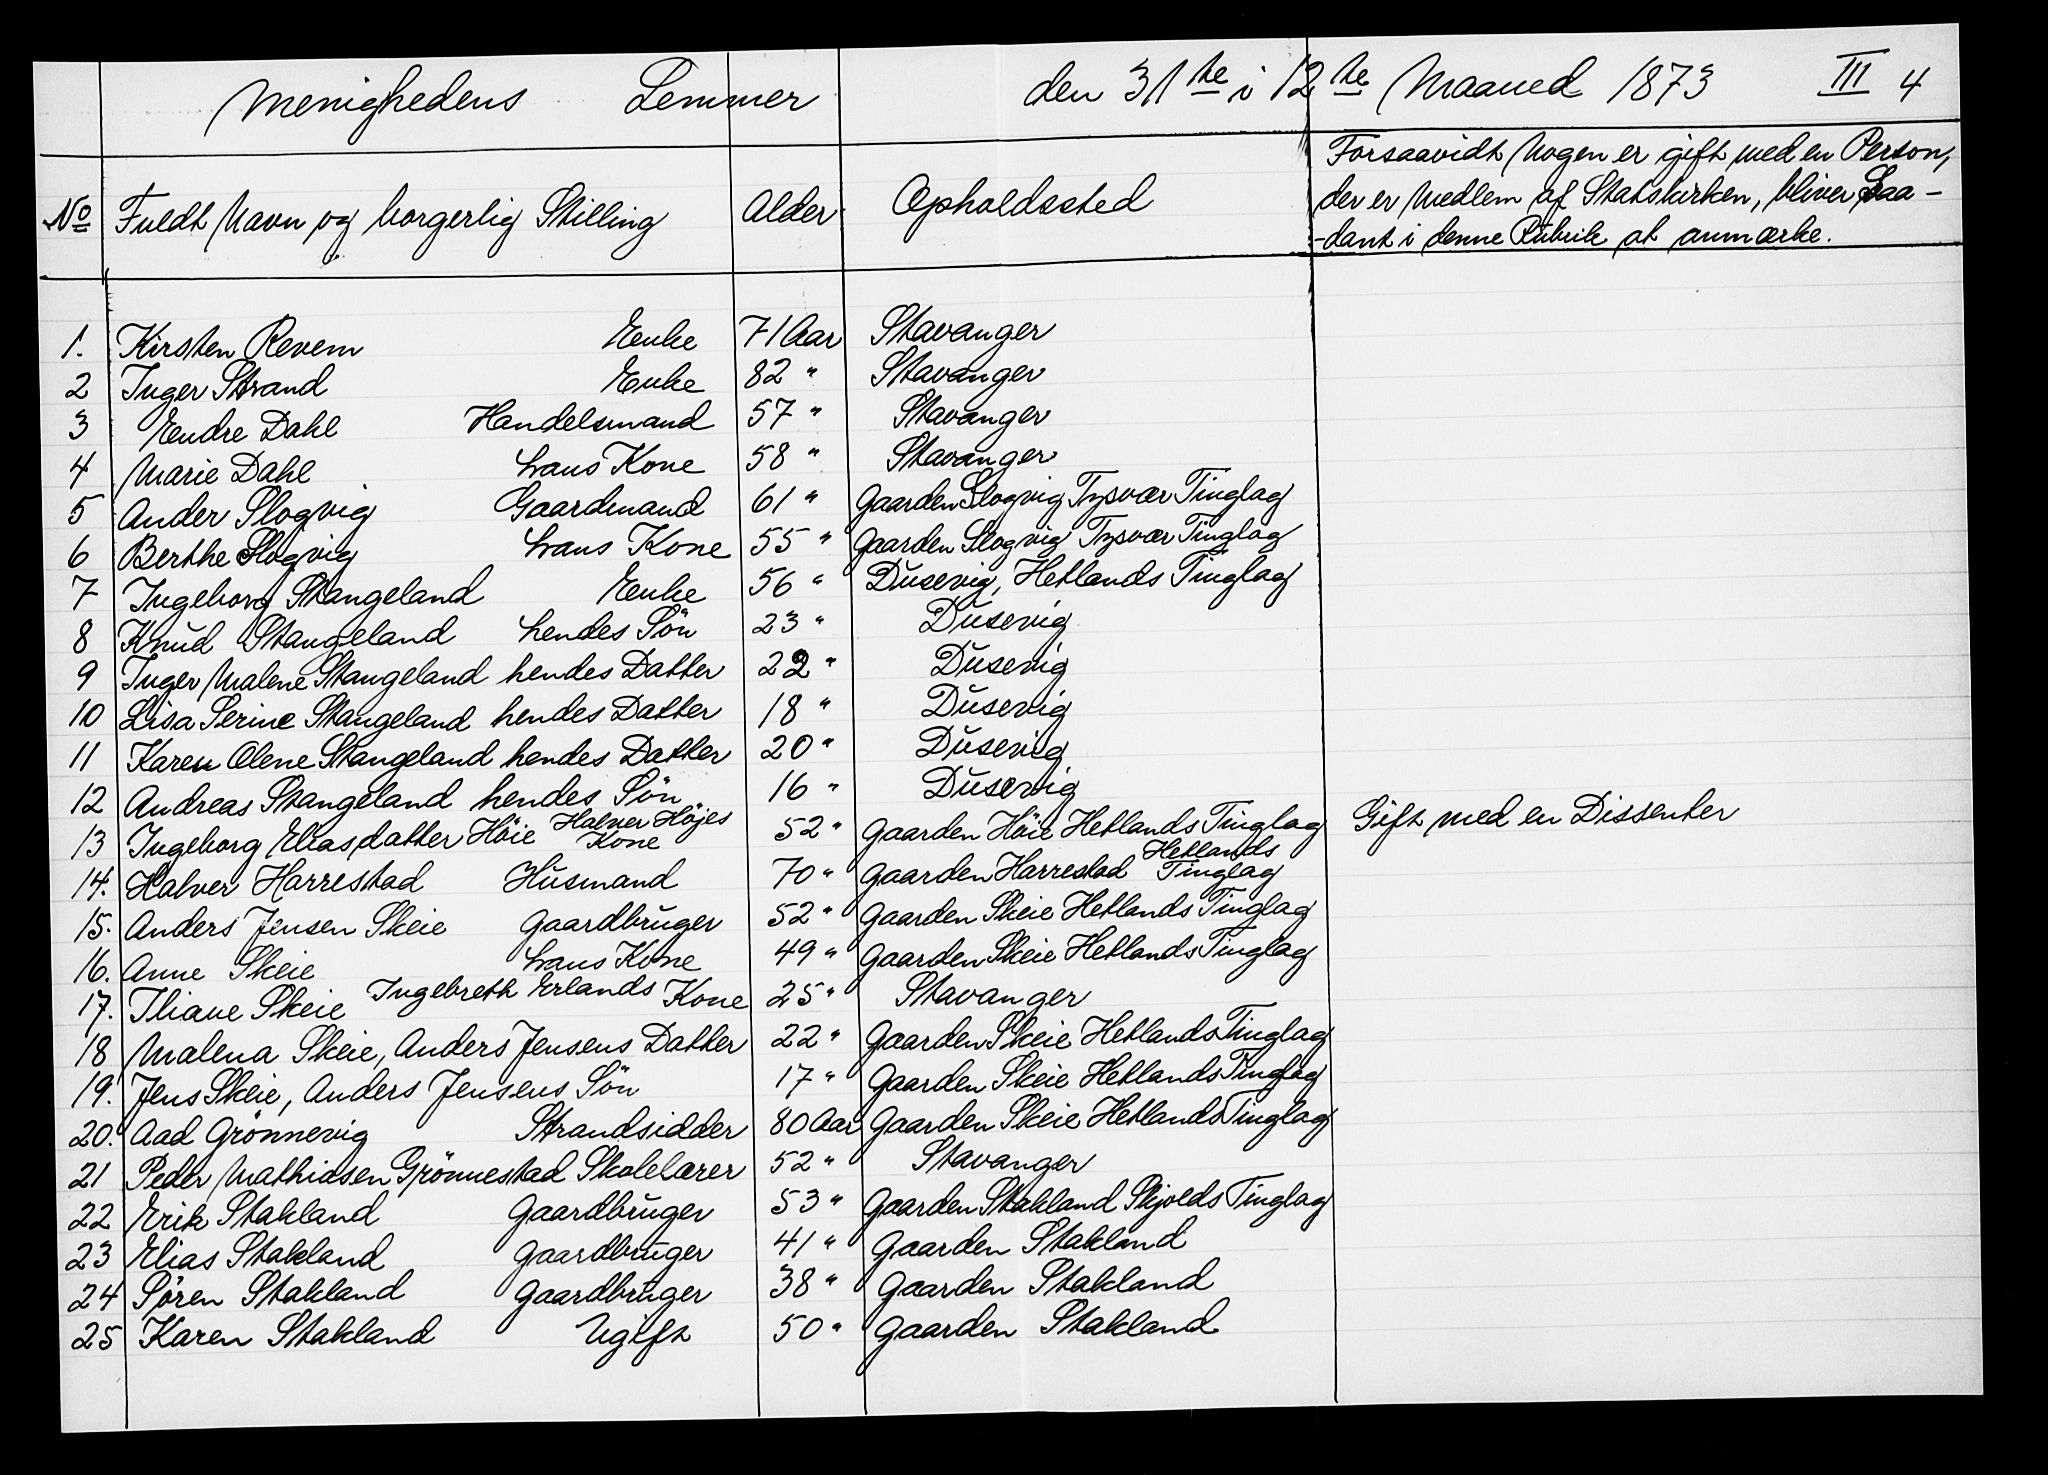 Menighedens Lemmer den 31te i 12te Maaned 1873 III 4
No Fuldt Navn og borgerlig Stilling Alder Opholdssted
Forsaavidt Nogen er gift med en Person,
der er Medlem af Statskirken, bliver Saa-
-dant i denne Rubrik at anmærke.
1. Kirsten Revem Enke 71 Aar Stavanger
2 Inger Strand Enke 82 " Stavanger
3 Endre Dahl Handelsmand 57 " Stavanger
4 Marie Dahl hans Kone 58 " Stavanger
5 Ander Slogvig Gaardmand 61 " Gaarden Slogvig Tysvær Tinglag
6 Berthe Slogvig hans Kone 55 " Gaarden Slogvig Tysvær Tinglag
7 Ingeborg Stangeland Enke 56 " Dusevig, Hetlands Tinglag
8 Knud Stangeland hendes Sön 23 " Dusevig
9 Inger Malene Stangeland hendes Datter 22 " Dusevig
10 Lisa Serine Stangeland hendes Datter 18 " Dusevig
11 Karen Olene Stangeland hendes Datter 20 " Dusevig
12 Andreas Stangeland hendes Sön 16 " Dusevig
13 Ingeborg Eliasdatter Höie Halver Höjes Kone 52 " Gaarden Höie Hetlands Tinglag Gift med en Dissenter
14. Halver Harrestad Husmand 70 " Gaarden Harrestad Hetlands Tinglag
15. Anders Jensen Skeie Gaardbruger 52 " Gaarden Skeie Hetlands Tinglag
16. Anne Skeie hans Kone 49 " Gaarden Skeie Hetlands Tinglag
17. Iliane Skeie Ingebreth Erlands Kone 25 " Stavanger
18 Malena Skeie, Anders Jensens Datter 22 " Gaarden Skeie Hetlands Tinglag
19. Jens Skeie, Anders Jensens Sön 17 " Gaarden Skeie Hetlands Tinglag
20. Aad Grönnevig Strandsidder 80 Aar Gaarden Skeie Hetlands Tinglag
21 Peder Mathiasen Grönnestad Skolelærer 52 " Stavanger
22 Erik Stakland Gaardbruger 53 " Gaarden Stakland Skjolds Tinglag
23 Elias Stakland Gaardbruger 41 " Gaarden Stakland
24 Sören Stakland Gaardbruger 38 " Gaarden Stakland
25 Karen Stakland Ugift 50 " Gaarden Stakland